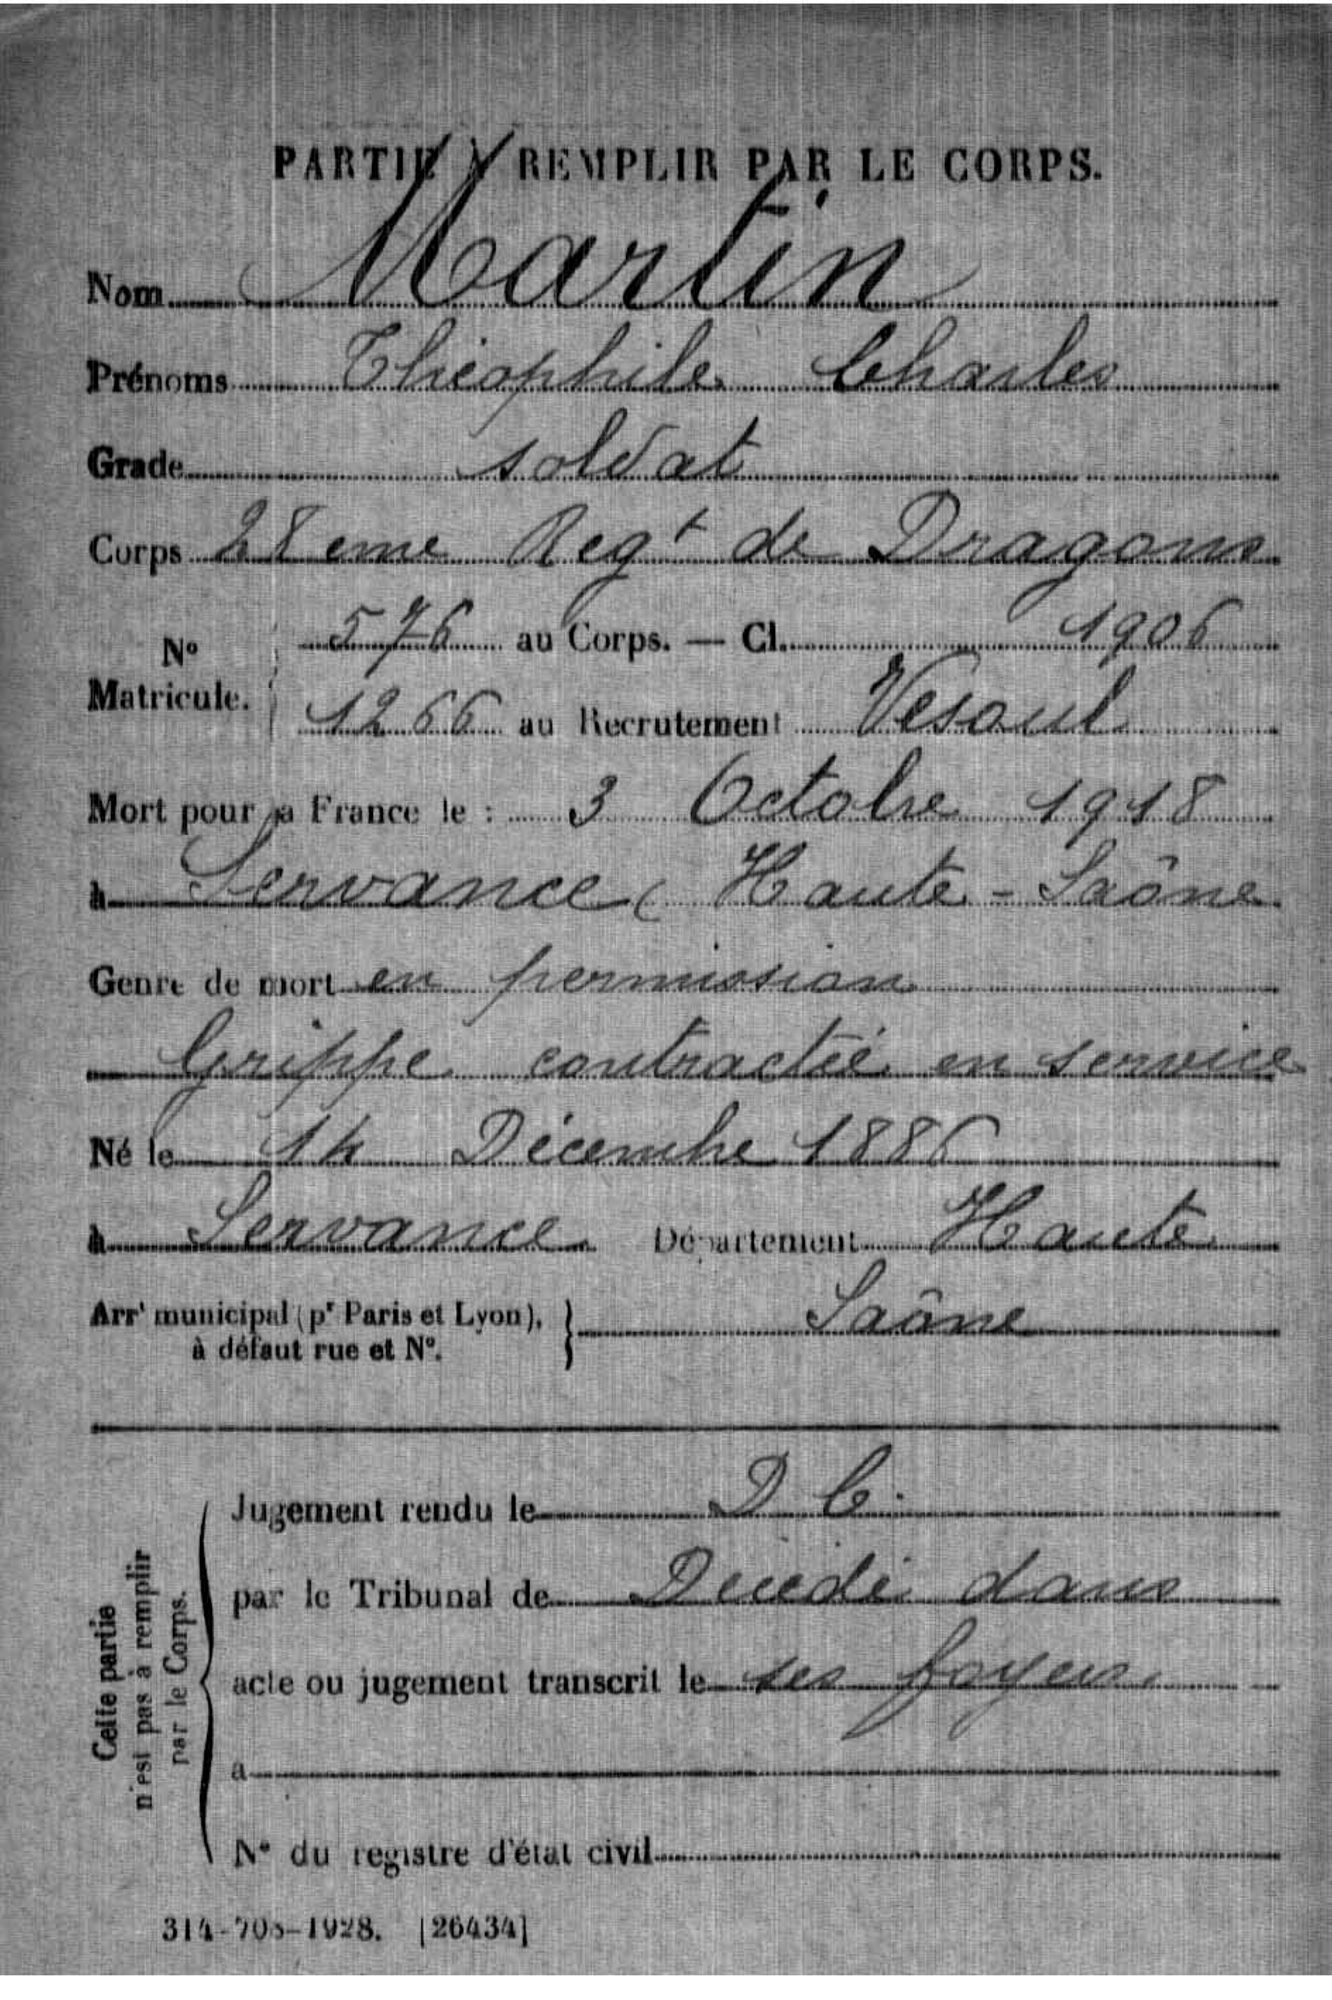 PARTIE À REMPLIR PAR LE CORPS.
Nom Martin
Prénoms Théophile Charles
Grade soldat
Corps 28eme Regt de Dragons
No Matricule. 576 au Corps. — Cl. 1906
1266 au Recrutement Vesoul
Mort pour la France le : 3 Octobre 1918
à Servance ( Haute - Saône
Genre de mort en permission
Grippe contractée en service
Né le 14 Décembre 1886
à Servance Département Haute
Arrt municipal (pr Paris et Lyon), à défaut rue et No. } Saône
Cette partie n'est pas à remplir par le Corps.
Jugement rendu le D C.
par le Tribunal de Décédé dans
acte ou jugement transcrit le ses foyers.
à
No du registre d'état civil
314-708-1928. [26434]